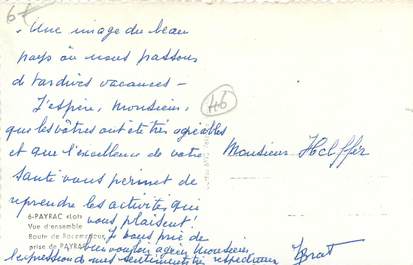 67
Une image du beau
pays où nous passons
de tardives vacances –
J'espère, Monsieur,
que les vôtres ont été très agréables
et que l'excellence de votre
santé vous permet de
reprendre les activités qui
vous plaisent !
Je vous prie de
bien vouloir agréer Monsieur
l'expression de mes sentiments très respectueux
46
Monsieur
6-PAYRAC (Lot)
Vue d'ensemble
Route de Rocamadour
prise de PAYRAC